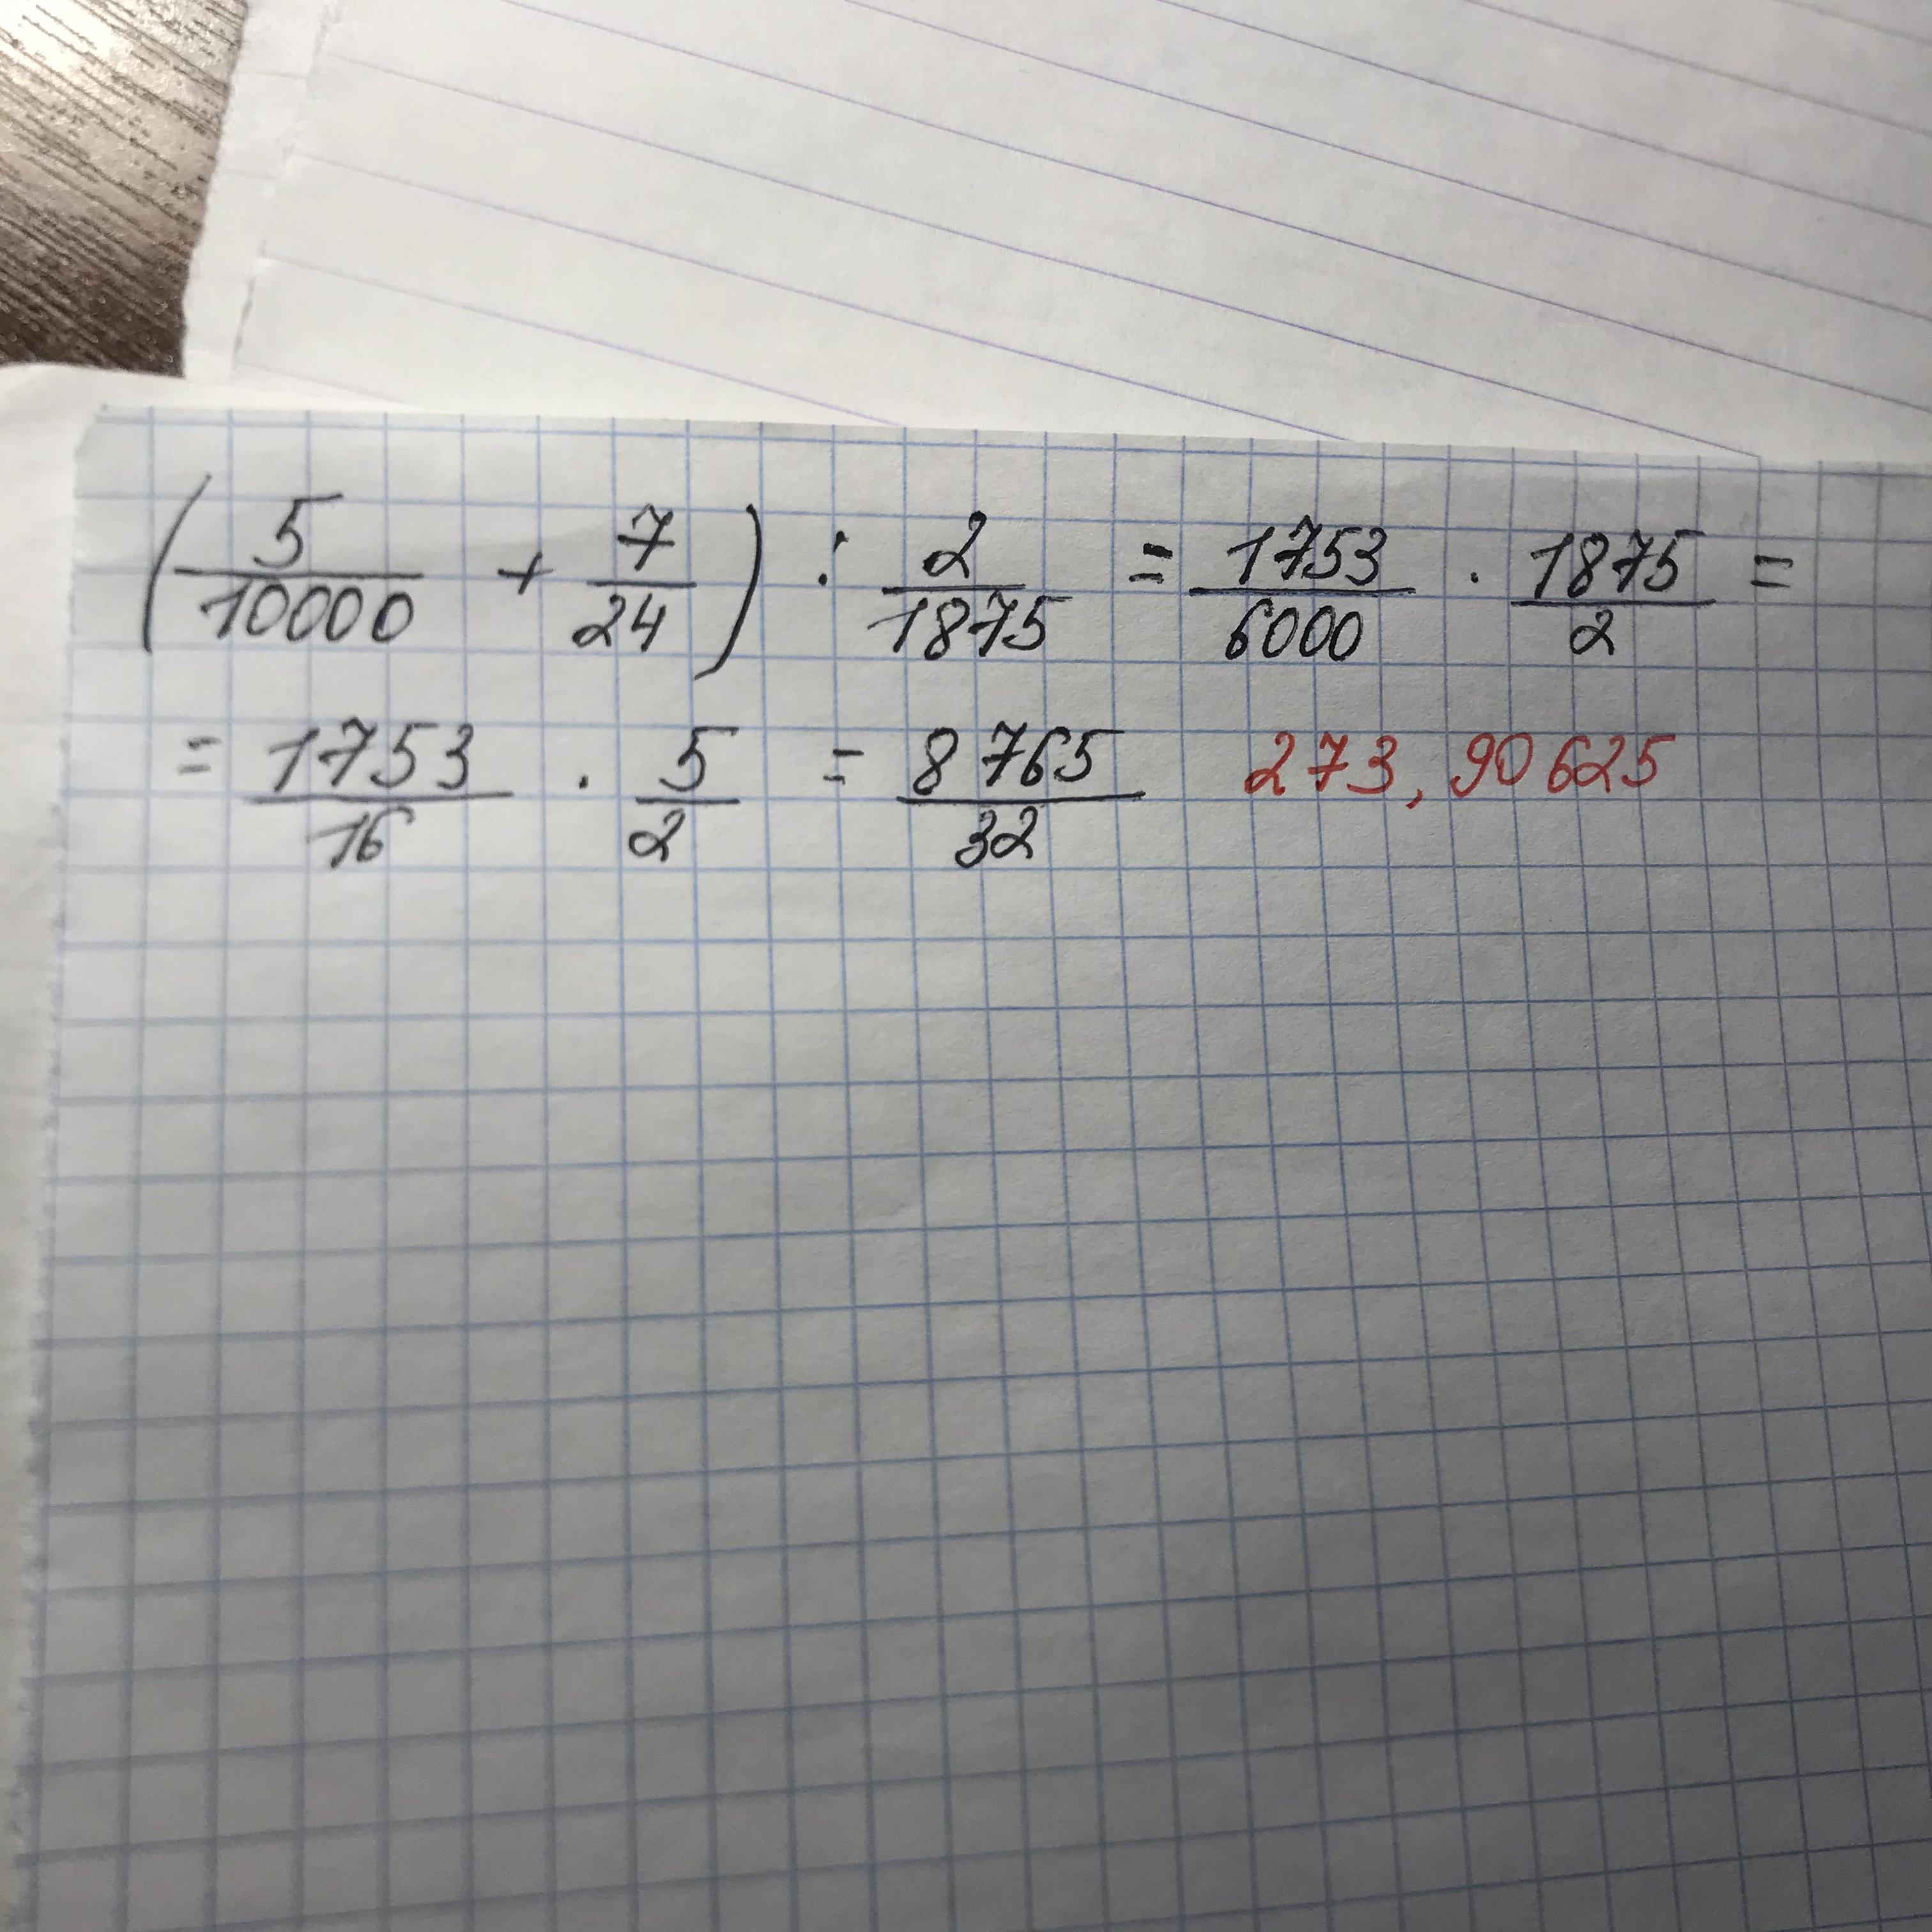 (5/10000 + 7/24) : 2/1875 = 1753/6000 · 1875/2 =
= 1753/16 · 5/2 = 8765/32 273,90625